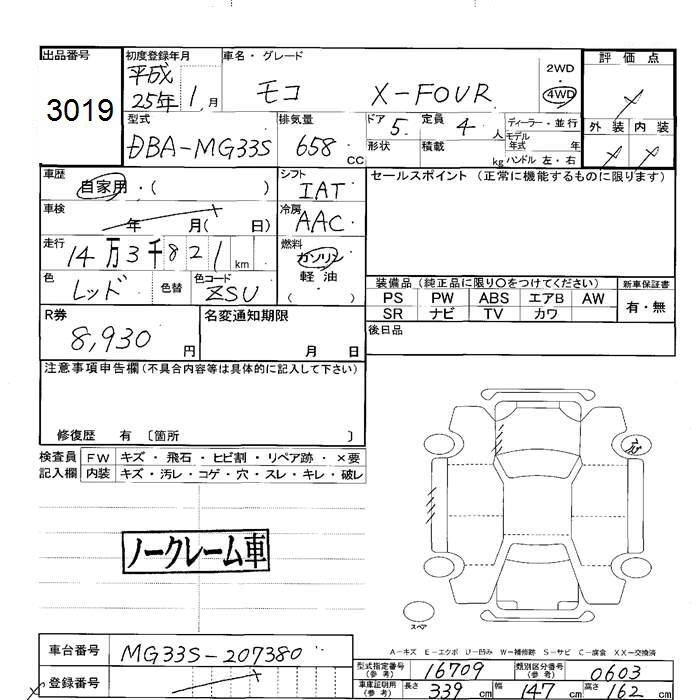 出品番号 初度登録年月 車名・グレード 評価点
3019 平成25年1月 モコ X-FOUR 2WD・4WD
外装 内装
型式 排気量 ドア 定員 ディーラー・並行
DBA-MG33S 658 CC 5 4 人
形状 積載 kg モデル年式 年
ハンドル 左・右
車歴 自家用・( ) シフト IAT セールスポイント (正常に機能するものに限ります)
車検 年 月( 日) 冷房 AAC
走行 14万3千821 km 燃料 ガソリン
軽油
( )
色 レッド 色替 色コード ZSU 装備品 (純正品に限り○をつけてください) 新車保証書
PS PW ABS エアB AW 有・無
SR ナビ TV カワ
R券 8,930 円 名変通知期限 月 日 後日品
注意事項申告欄(不具合内容等は具体的に記入して下さい)
修復歴 有 〔箇所 〕
検査員 FW キズ・飛石・ヒビ割・リペア跡・×要
記入欄 内装 キズ・汚レ・コゲ・穴・スレ・キレ・破レ
ノークレーム車
スペア
A-キズ E-エクボ U-凹み W-補修跡 S-サビ C-腐食 XX-交換済
車台番号 MG33S-207380 型式指定番号(参考) 16709 類別区分番号(参考) 0603
登録番号 車庫証明用(参考) 長さ 339 cm 幅 147 cm 高さ 162 cm